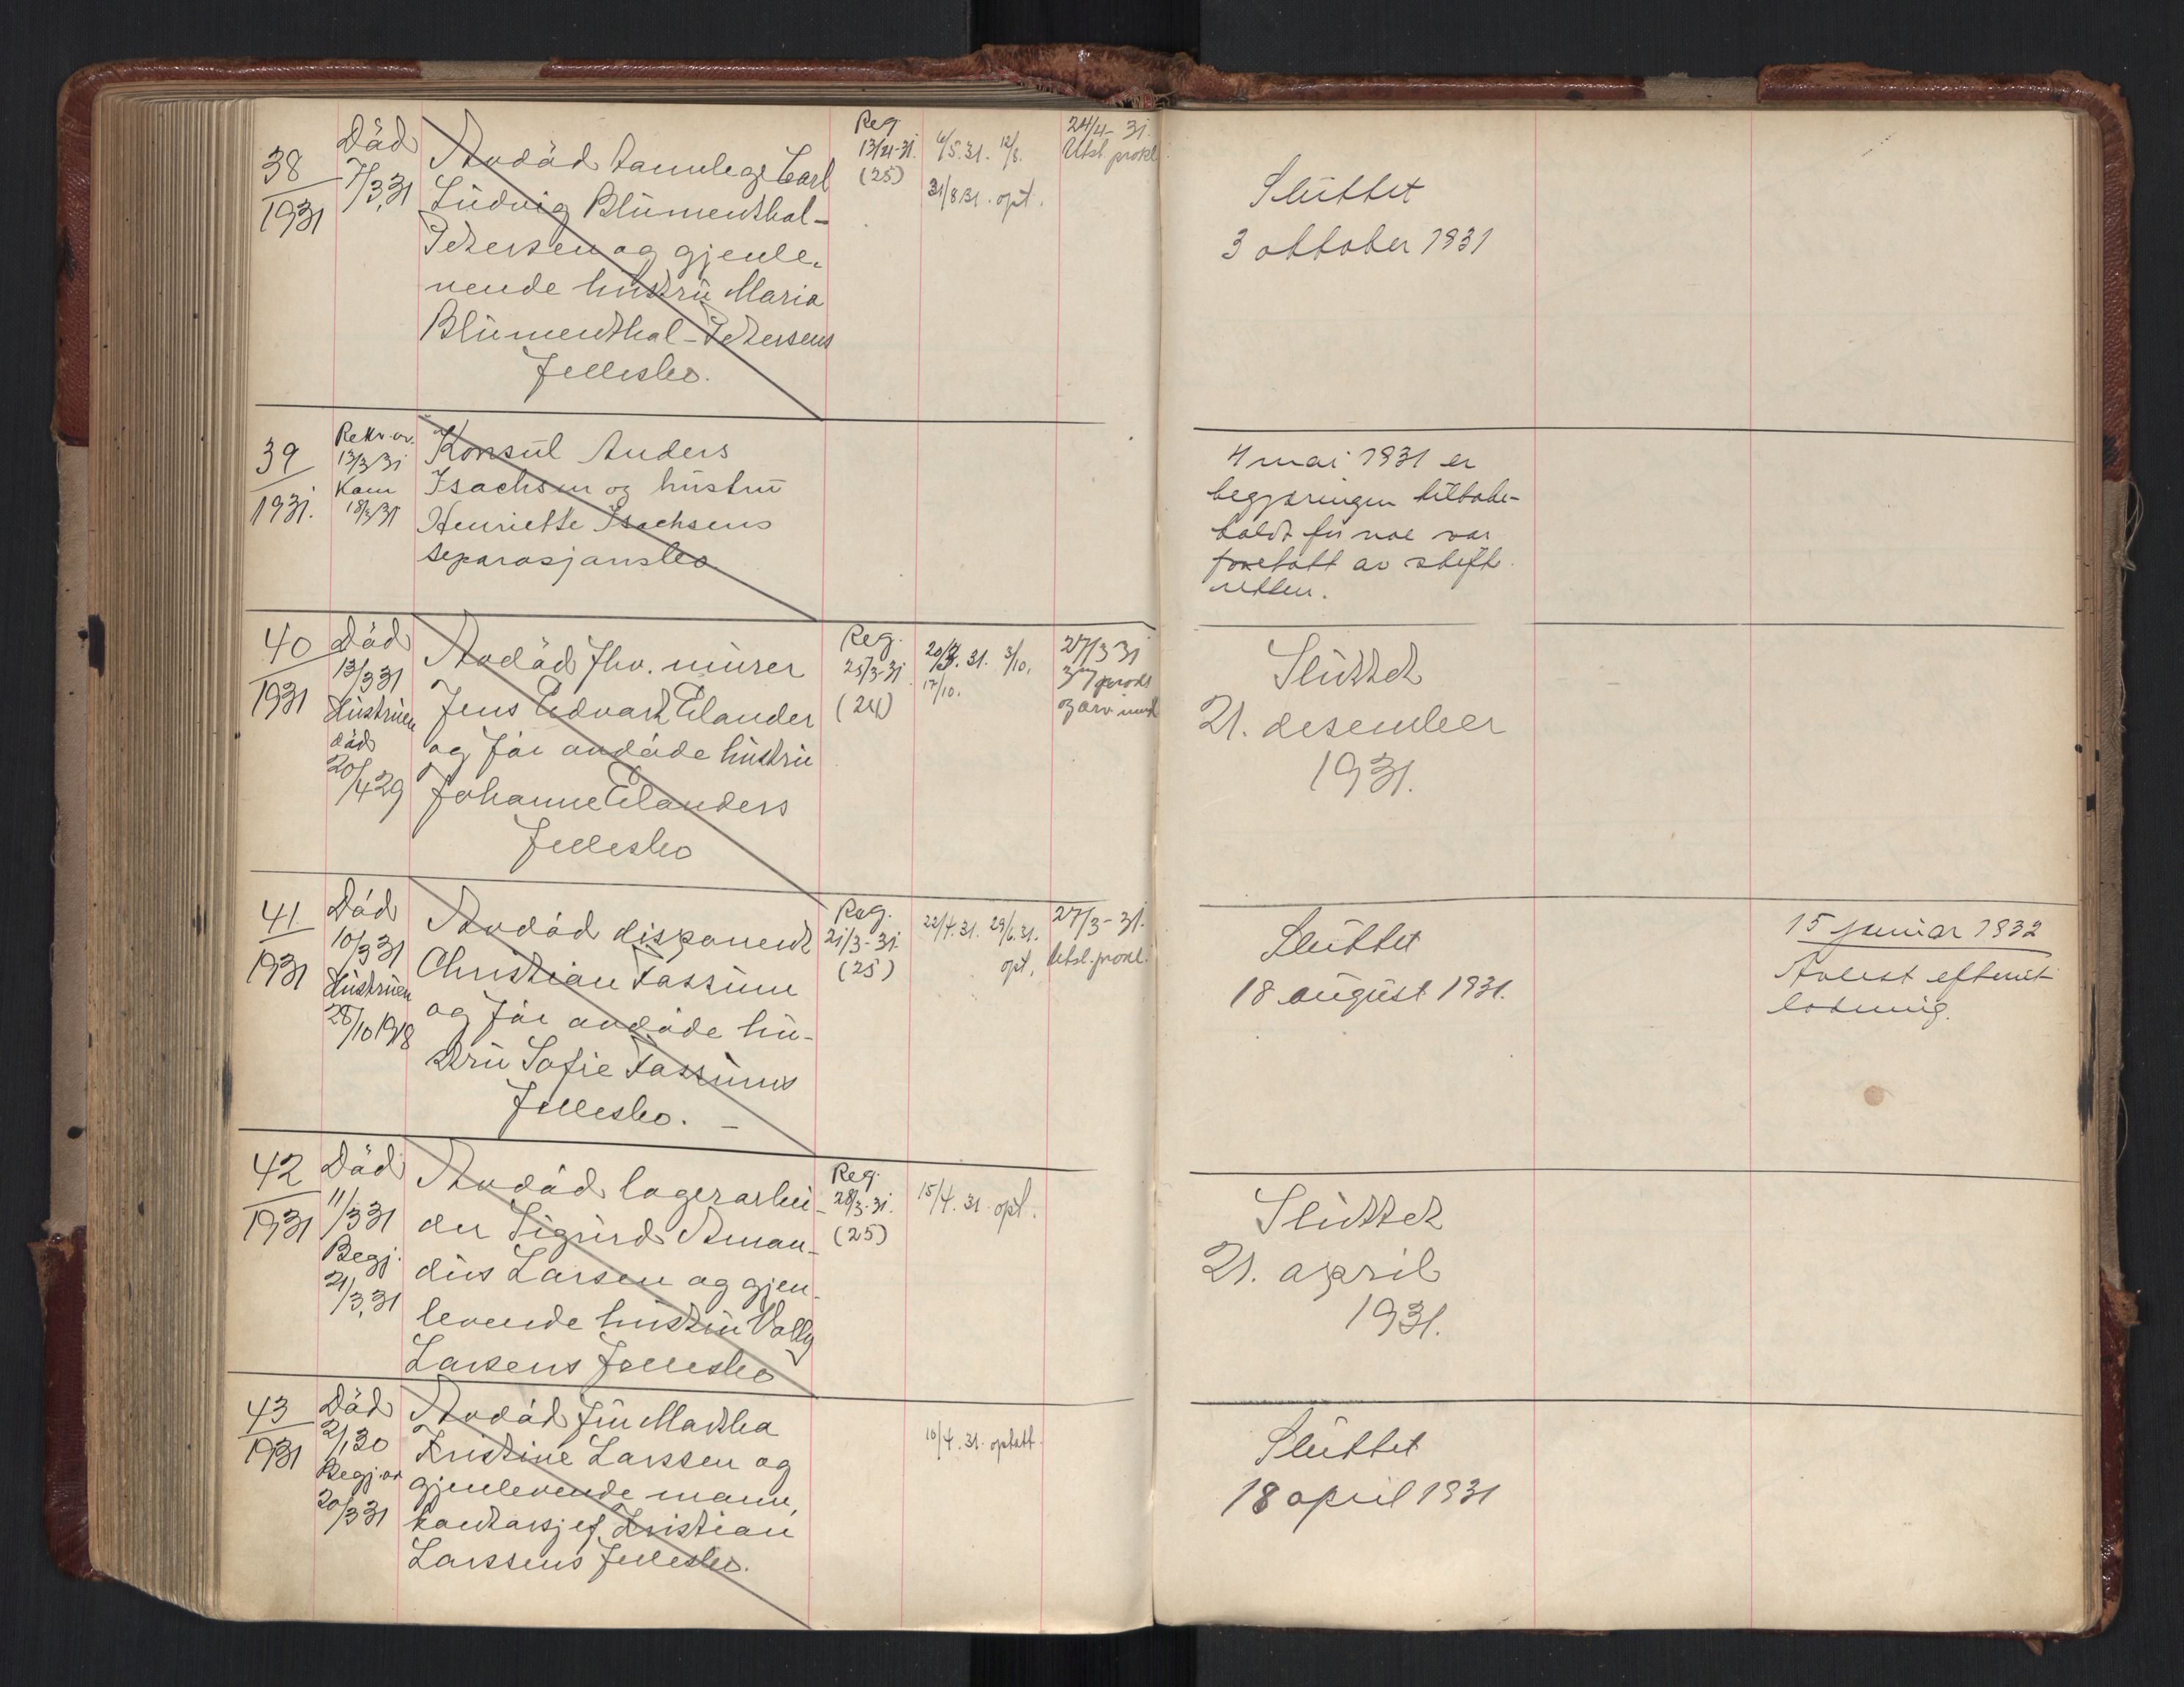 38
1931
Død
7/3,31
Avdød tannlege Carl
Ludvig Blumenthal-
Petersen og gjenle-
vende hustru Maria
Blumenthal-Petersens
fellesbo.
Reg
13/4-31.
(25)
6/5.31. 12/8.
31/8.31. opt.
24/4-31.
Utst. prokl.
Sluttet
3 oktober 1931
39
1931.
Rekv. av.
13/3 31
Kom
18/3 31
Konsul Anders
Isachsen og hustru
Henriette Isachsens
separasjonsbo.
4 mai 1931 er
begjæringen tilbake-
kaldt før noe var
foretatt av skifte-
retten.
40
1931
Død
13/3 31
Hustruen
død
20/4 29
Avdød fhv. murer
Jens Edvard Elander
og før avdøde hustru
Johanne Elanders
fellesbo
Reg.
25/3-31
(24)
31. 3/10.
17/10.
27/3 31
Sluttet
21. desember
1931.
41
1931
Død
10/3 31
Hustruen
28/10 1918
Avdød disponent
Christian Fassum
og før avdøde hu-
stru Sofie Fassums
fellesbo. -
Reg.
21/3-31.
(25)
22/4.31. 29/6.31.
opt.
27/3-31.
Utst. prokl.
Sluttet
18 august 1931.
15 januar 1932
Avlest efterut-
lodning.
42
1931
Død
11/3 31
Begj.
21/3,31
Avdød lagerarbei-
der Sigurd Aman-
dus Larsen og gjen-
levende hustru Valli
Larsens fellesbo
Reg.
28/3-31.
(25)
15/4.31. opt.
Sluttet
21. april
1931.
43
1931
Død
2/1,30
Begj. av
20/3 31
Avdød fru Martha
Kristine Larssen og
gjenlevende mann,
kontorsjef Kristian
Larssens fellesbo.
10/4.31. optatt.
Sluttet
18 april 1931